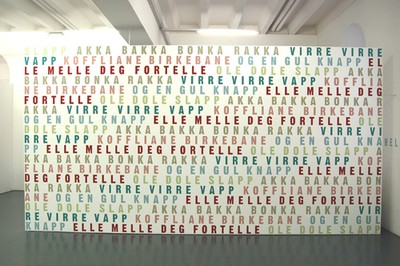 SLAPP AKKA BAKKA BONKA RAKKA VIRRE VIRRE
VAPP KOFFLIANE BIRKEBANE OG EN GUL KNAPP EL
LE MELLE DEG FORTELLE OLE DOLE SLAPP AKKA
BAKKA BONKA RAKKA VIRRE VIRRE VAPP KOFFLI
ANE BIRKEBANE OG EN GUL KNAPP ELLE MELLE DEG
FORTELLE OLE DOLE SLAPP AKKA BAKKA BONKA R
AKKA VIRRE VIRRE VAPP KOFFLIANE BIRKEBANE
OG EN GUL KNAPP ELLE MELLE DEG FORTELLE OLE
DOLE SLAPP AKKA BAKKA BONKA RAKKA VIRRE VI
RRE VAPP KOFFLIANE BIRKEBANE OG EN GUL KNA
PP ELLE MELLE DEG FORTELLE OLE DOLE SLAPP A
KKA BAKKA BONKA RAKKA VIRRE VIRRE VAPP KO
FFLIANE BIRKEBANE OG EN GUL KNAPP ELLE MELLE
DEG FORTELLE OLE DOLE SLAPP AKKA BAKKA BON
KA RAKKA VIRRE VIRRE VAPP KOFFLIANE BIRKEB
ANE OG EN GUL KNAPP ELLE MELLE DEG FORTELLE
OLE DOLE SLAPP AKKA BAKKA BONKA RAKKA VI
RRE VIRRE VAPP KOFFLIANE BIRKEBANE OG EN GUL
KNAPP ELLE MELLE DEG FORTELLE OLE DOLE SLA